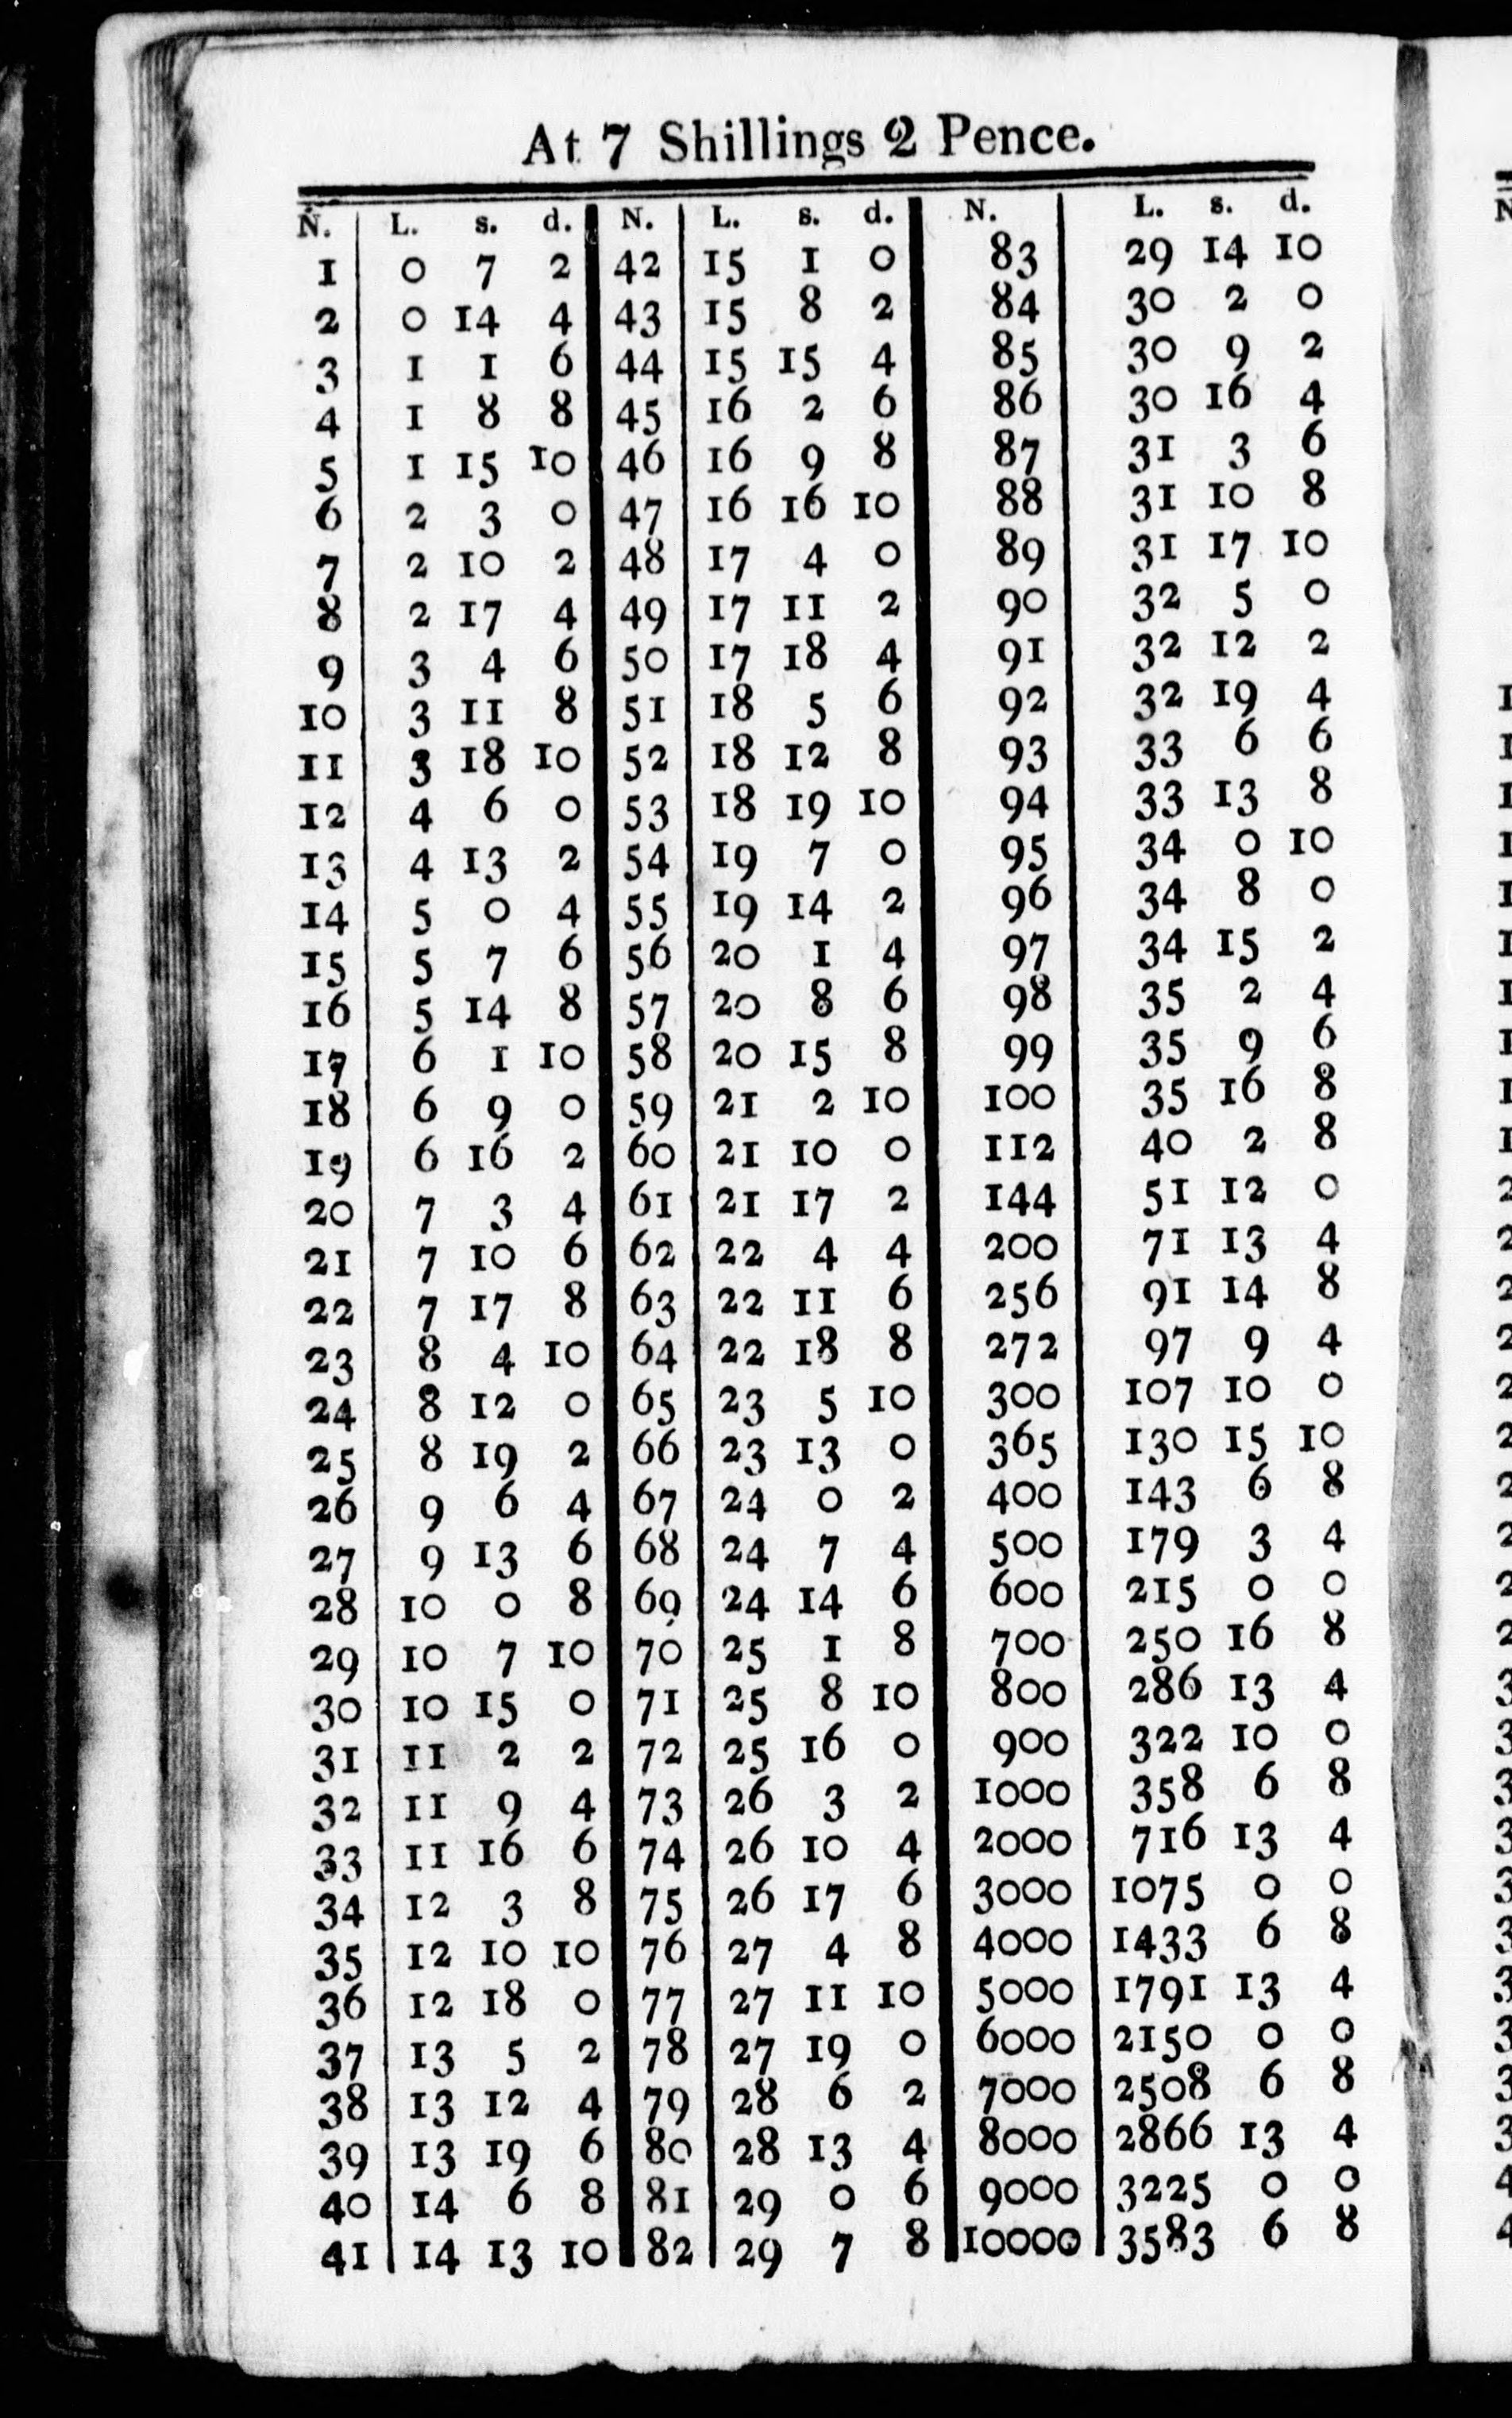 At 7 Shillings 2 Pence.
N. L. s. d. N. L. s. d. N. L. s. d.
1 0 7 2 42 15 1 0 83 29 14 10
2 0 14 4 43 15 8 2 84 30 2 0
3 1 1 6 44 15 15 4 85 30 9 2
4 1 8 8 45 16 2 6 86 30 16 4
5 1 15 10 46 16 9 8 87 31 3 6
6 2 3 0 47 16 16 10 88 31 10 8
7 2 10 2 48 17 4 0 89 31 17 10
8 2 17 4 49 17 11 2 90 32 5 0
9 3 4 6 50 17 18 4 91 32 12 2
10 3 11 8 51 18 5 6 92 32 19 4
11 3 18 10 52 18 12 8 93 33 6 6
12 4 6 0 53 18 19 10 94 33 13 8
13 4 13 2 54 19 7 0 95 34 0 10
14 5 0 4 55 19 14 2 96 34 8 0
15 5 7 6 56 20 1 4 97 34 15 2
16 5 14 8 57 20 8 6 98 35 2 4
17 6 1 10 58 20 15 8 99 35 9 6
18 6 9 0 59 21 2 10 100 35 16 8
19 6 16 2 60 21 10 0 112 40 2 8
20 7 3 4 61 21 17 2 144 51 12 0
21 7 10 6 62 22 4 4 200 71 13 4
22 7 17 8 63 22 11 6 256 91 14 8
23 8 4 10 64 22 18 8 272 97 9 4
24 8 12 0 65 23 5 10 300 107 10 0
25 8 19 2 66 23 13 0 365 130 15 10
26 9 6 4 67 24 0 2 400 143 6 8
27 9 13 6 68 24 7 4 500 179 3 4
28 10 0 8 69 24 14 6 600 215 0 0
29 10 7 10 70 25 1 8 700 250 16 8
30 10 15 0 71 25 8 10 800 286 13 4
31 11 2 2 72 25 16 0 900 322 10 0
32 11 9 4 73 26 3 2 1000 358 6 8
33 11 16 6 74 26 10 4 2000 716 13 4
34 12 3 8 75 26 17 6 3000 1075 0 0
35 12 10 10 76 27 4 8 4000 1433 6 8
36 12 18 0 77 27 11 10 5000 1791 13 4
37 13 5 2 78 27 19 0 6000 2150 0 0
38 13 12 4 79 28 6 2 7000 2508 6 8
39 13 19 6 80 28 13 4 8000 2866 13 4
40 14 6 8 81 29 0 6 9000 3225 0 0
41 14 13 10 82 29 7 8 10000 3583 6 8